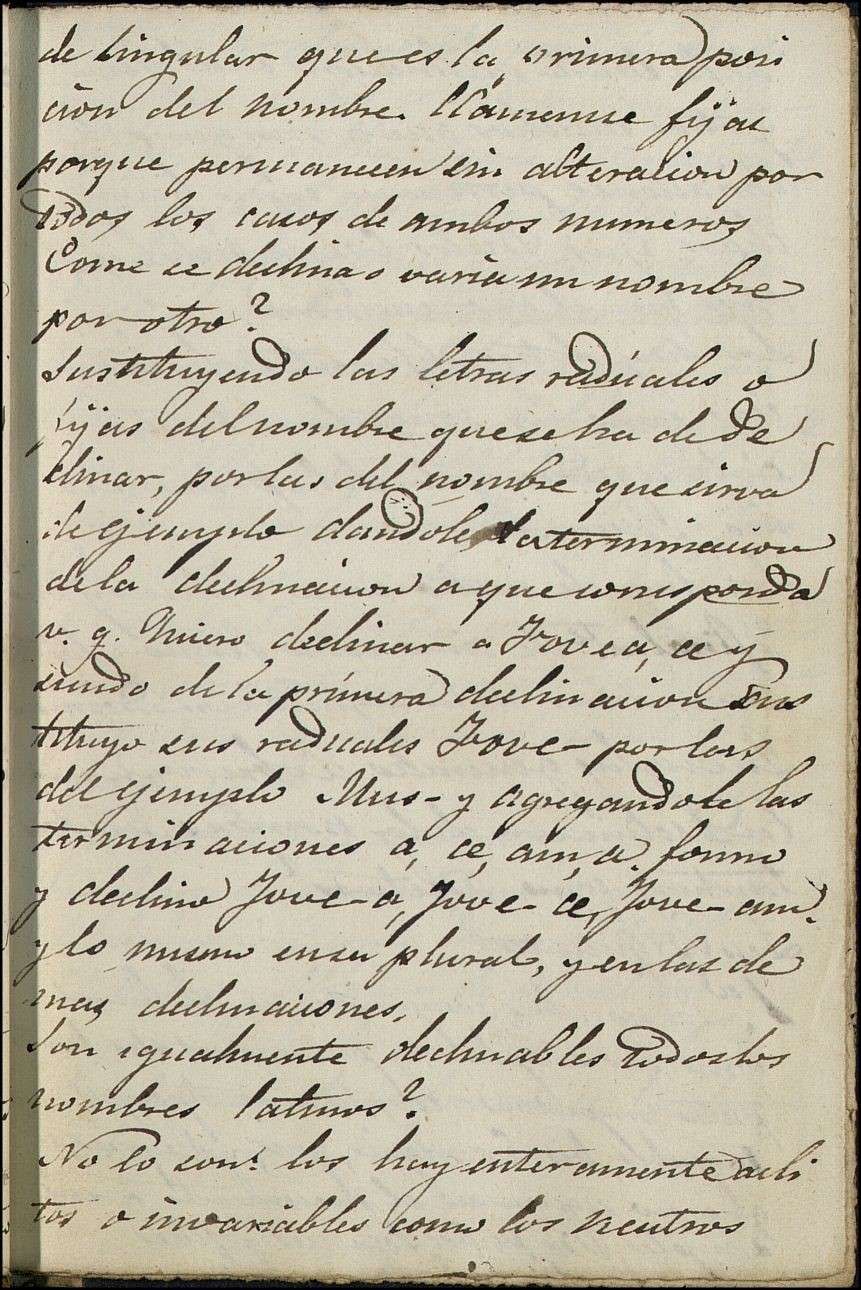 de singular que es la primera posi
cion del nombre. Llamense fijas
porque permanecen sin alteracion por
todos los casos de ambos numeros
Como se declina o varia un nombre
por otro?
Sustituyendo las letras radicales o
fijas del nombre que se ha de de
clinar, por las del nombre que sirva
de ejemplo dandole la terminacion
de la declinacion a que corresponda
v. g. Quiero declinar a Fovea, æ y
siendo de la primera declinacion sus
tituyo sus radicales Fove- por las
del ejemplo Mus- y agregandole las
terminaciones a, æ, am, a. formo
y declino Fove-a, Fove-æ, Fove-am.
y lo mismo en su plural, y en las de
mas declinaciones.
Son igualmente declinables todos los
nombres latinos?
No lo son: los hay enteramente acli
tos o invariables como los neutros